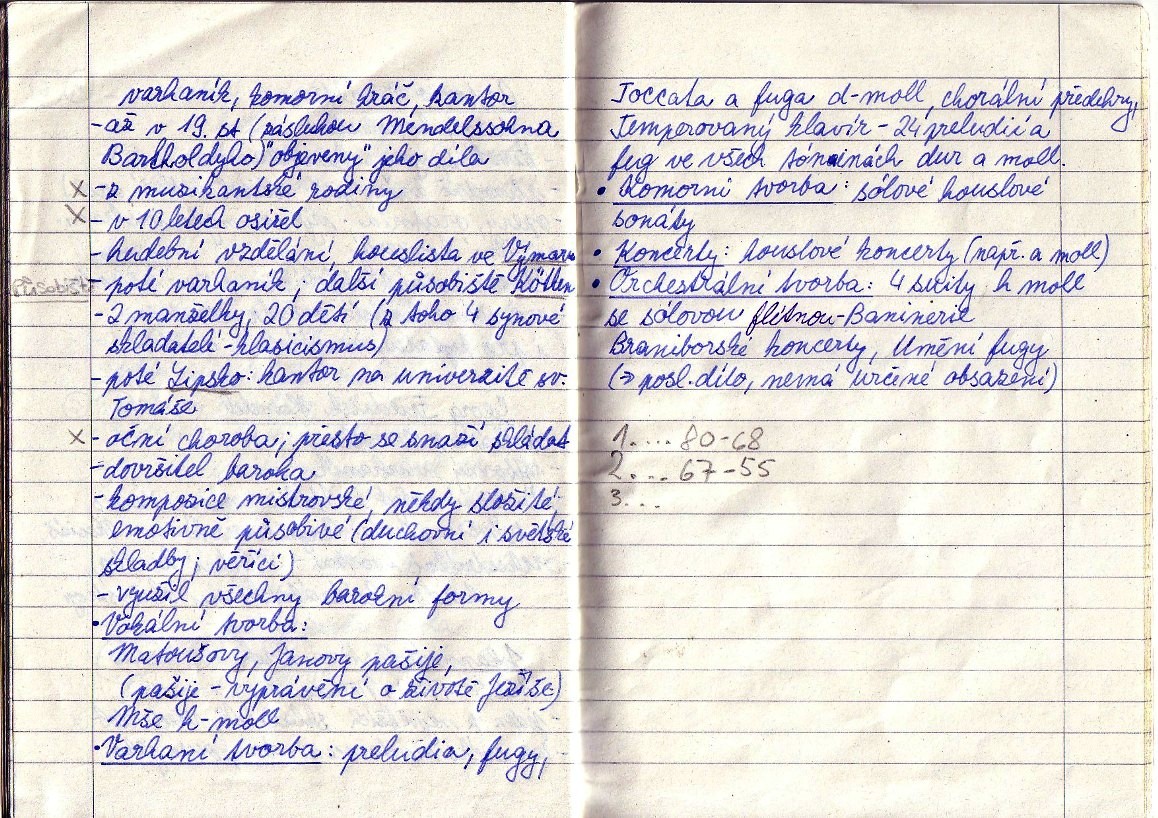 varhaník, komorní hráč, kantor
- až v 19. st (zásluhou Mendelssohna
Bartholdyho) "objeveny" jeho díla
x - z muzikantské rodiny
x - v 10 letech osiřel
- hudební vzdělání, houslista ve Výmaru
- poté varhaník; další působiště Köthen
- 2 manželky, 20 dětí (z toho 4 synové
skladatelé - klasicismus)
- poté Lipsko: kantor na univerzitě sv.
Tomáše
x - oční choroba; přesto se snaží skládat
- dovršitel baroka
- kompozice mistrovské, někdy složité,
emotivně působivé (duchovní i světské
skladby; věřící)
- využil všechny barokní formy
• Vokální tvorba:
Matoušovy, Janovy pašije,
(pašije - vyprávění o životě Ježíše)
Mše h-moll
• Varhaní tvorba: preludia, fugy,
Toccata a fuga d-moll, chorální předehry,
Temperovaný klavír - 24 preludií a
fug ve všech tóninách dur a moll.
• Komorní tvorba: sólové houslové
sonáty
• Koncerty: houslové koncerty (např. a moll)
• Orchestrální tvorba: 4 svity h moll
se sólovou flétnou - Baninerie
Braniborské koncerty, Umění fugy
(⇒ posl. dílo, nemá určené obsazení)
1.... 80-68
2.... 67-55
3...